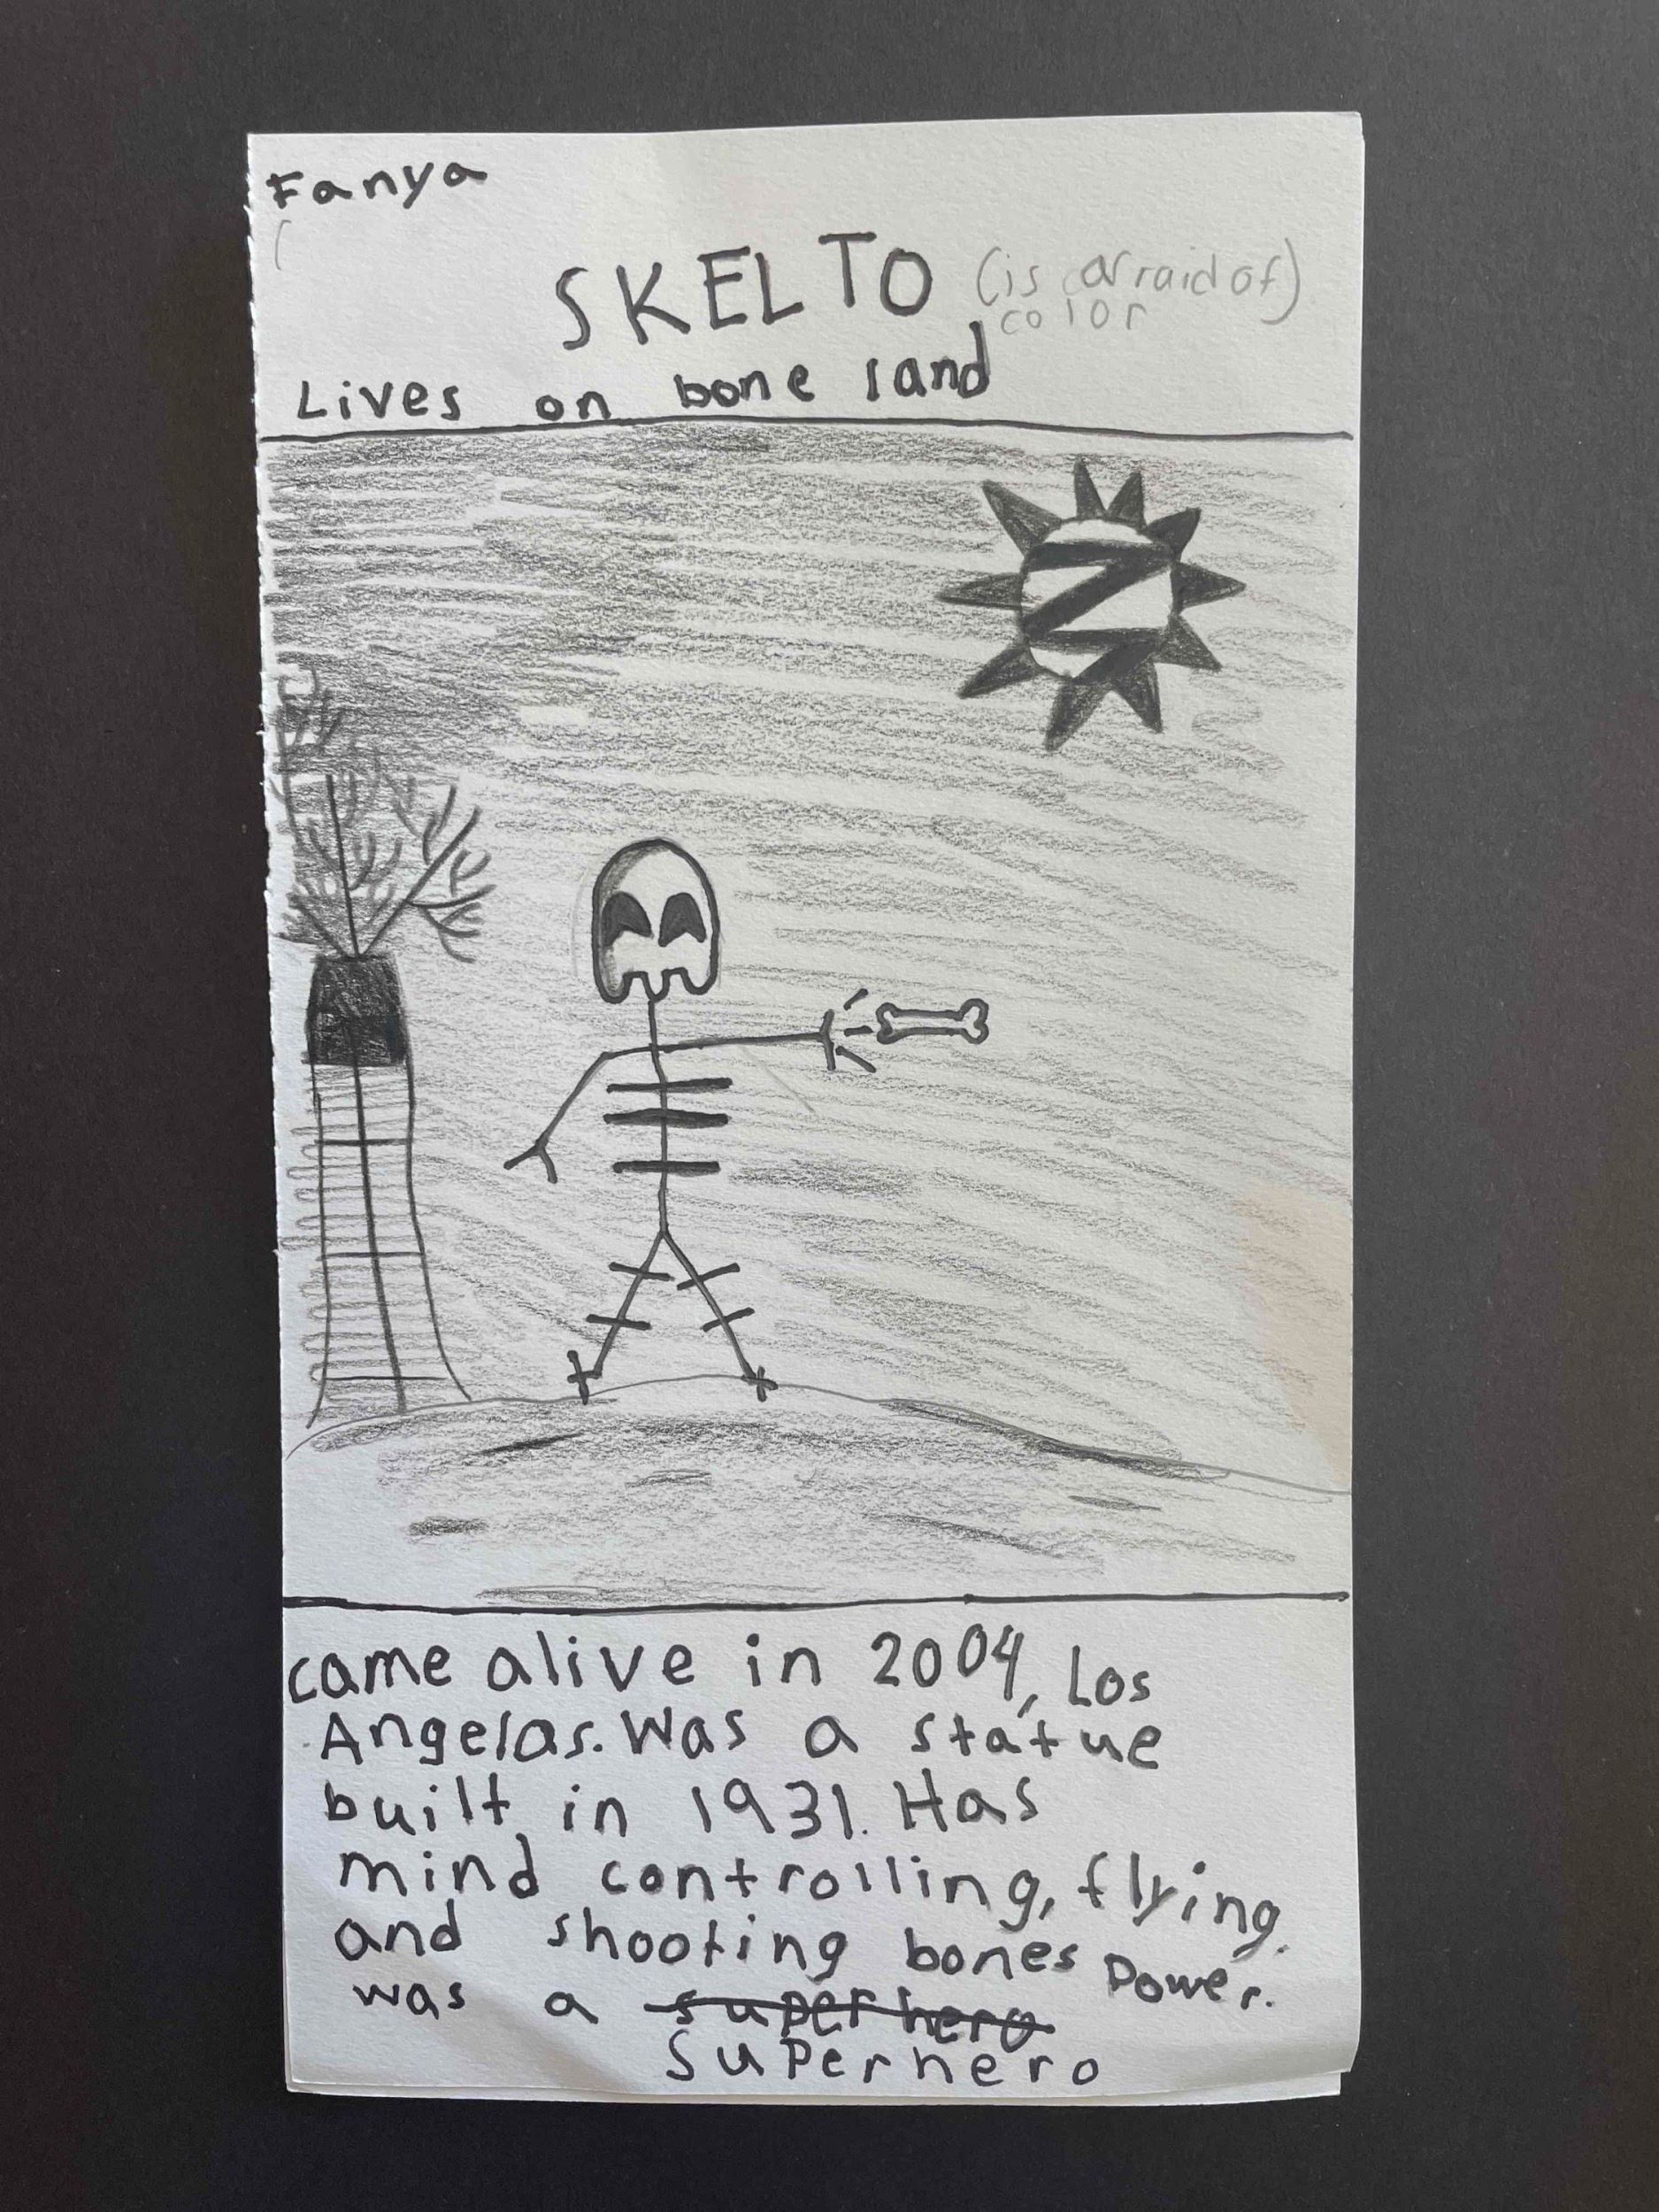 Fanya
SKELTO (is afraid of)
color
Lives on bone land
came alive in 2004, Los
Angelas. Was a statue
built in 1931. Has
mind controlling, flying.
and shooting bones Power.
was a super hero
Superhero